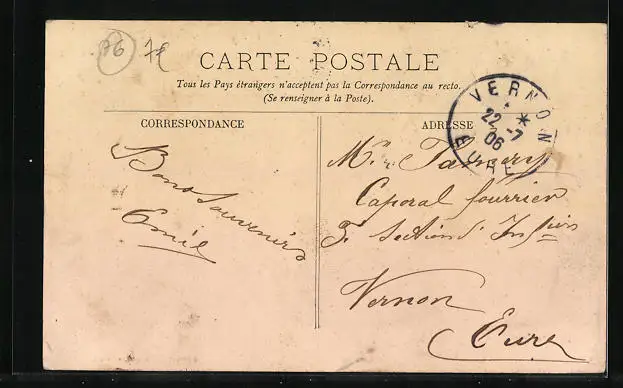 76 79
CARTE POSTALE
Tous les Pays étrangers n'acceptent pas la Correspondance au recto.
(Se renseigner à la Poste).
CORRESPONDANCE
ADRESSE
VERNON
22 -7
06
EURE
Bons Souvenirs
Emile
Mr
Caporal fourrier
Section d'
Vernon
Eure